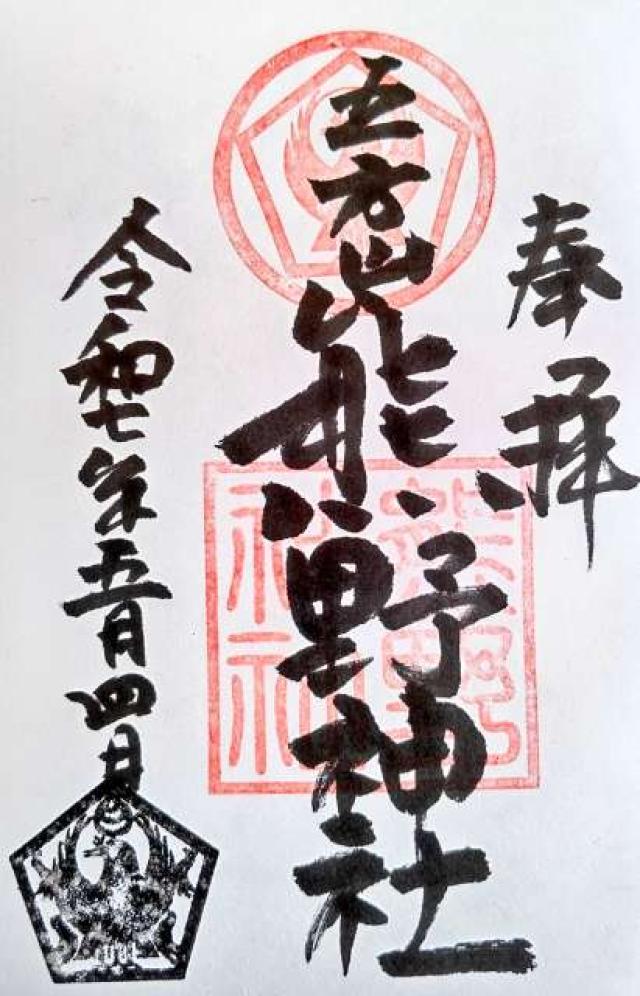 奉拝
五方山熊野神社
熊野
神社
令和七年五月四日